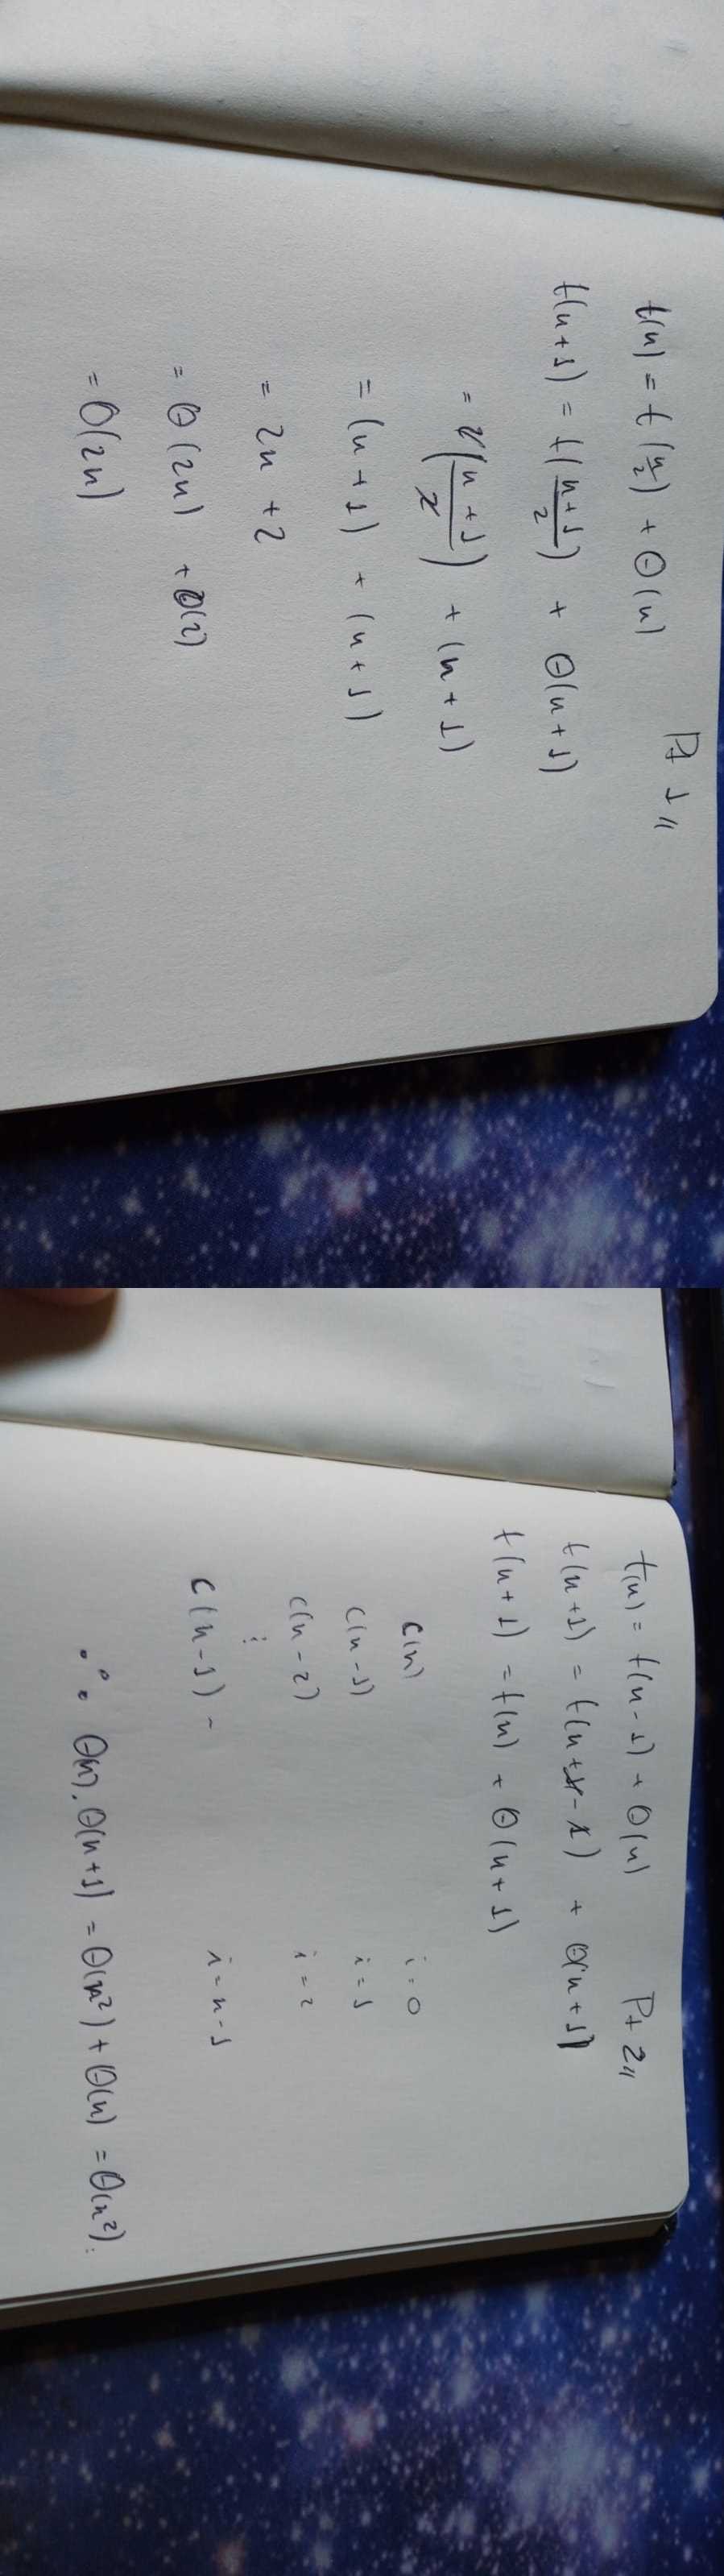 Pt 1 //
t(n) = t(n/2) + Θ(n)
t(n+1) = t((n+1)/2) + Θ(n+1)
= 2((n+1)/2) + (n+1)
= (n+1) + (n+1)
= 2n + 2
= Θ(2n) + Θ(2)
= Θ(2n)
t(n) = t(n-1) + Θ(n) Pt 2 //
t(n+1) = t(n+1-1) + Θ(n+1)
t(n+1) = t(n) + Θ(n+1)
c(n) i = 0
c(n-1) i = 1
c(n-2) i = 2
⋮
c(n-1) - i = n-1
∴ Θ(n) . Θ(n+1) = Θ(n²) + Θ(n) = Θ(n²).